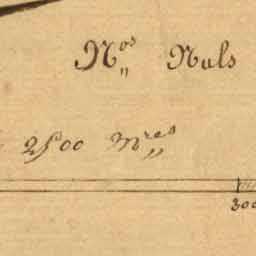 Nos Nuls
2500 Mres
300